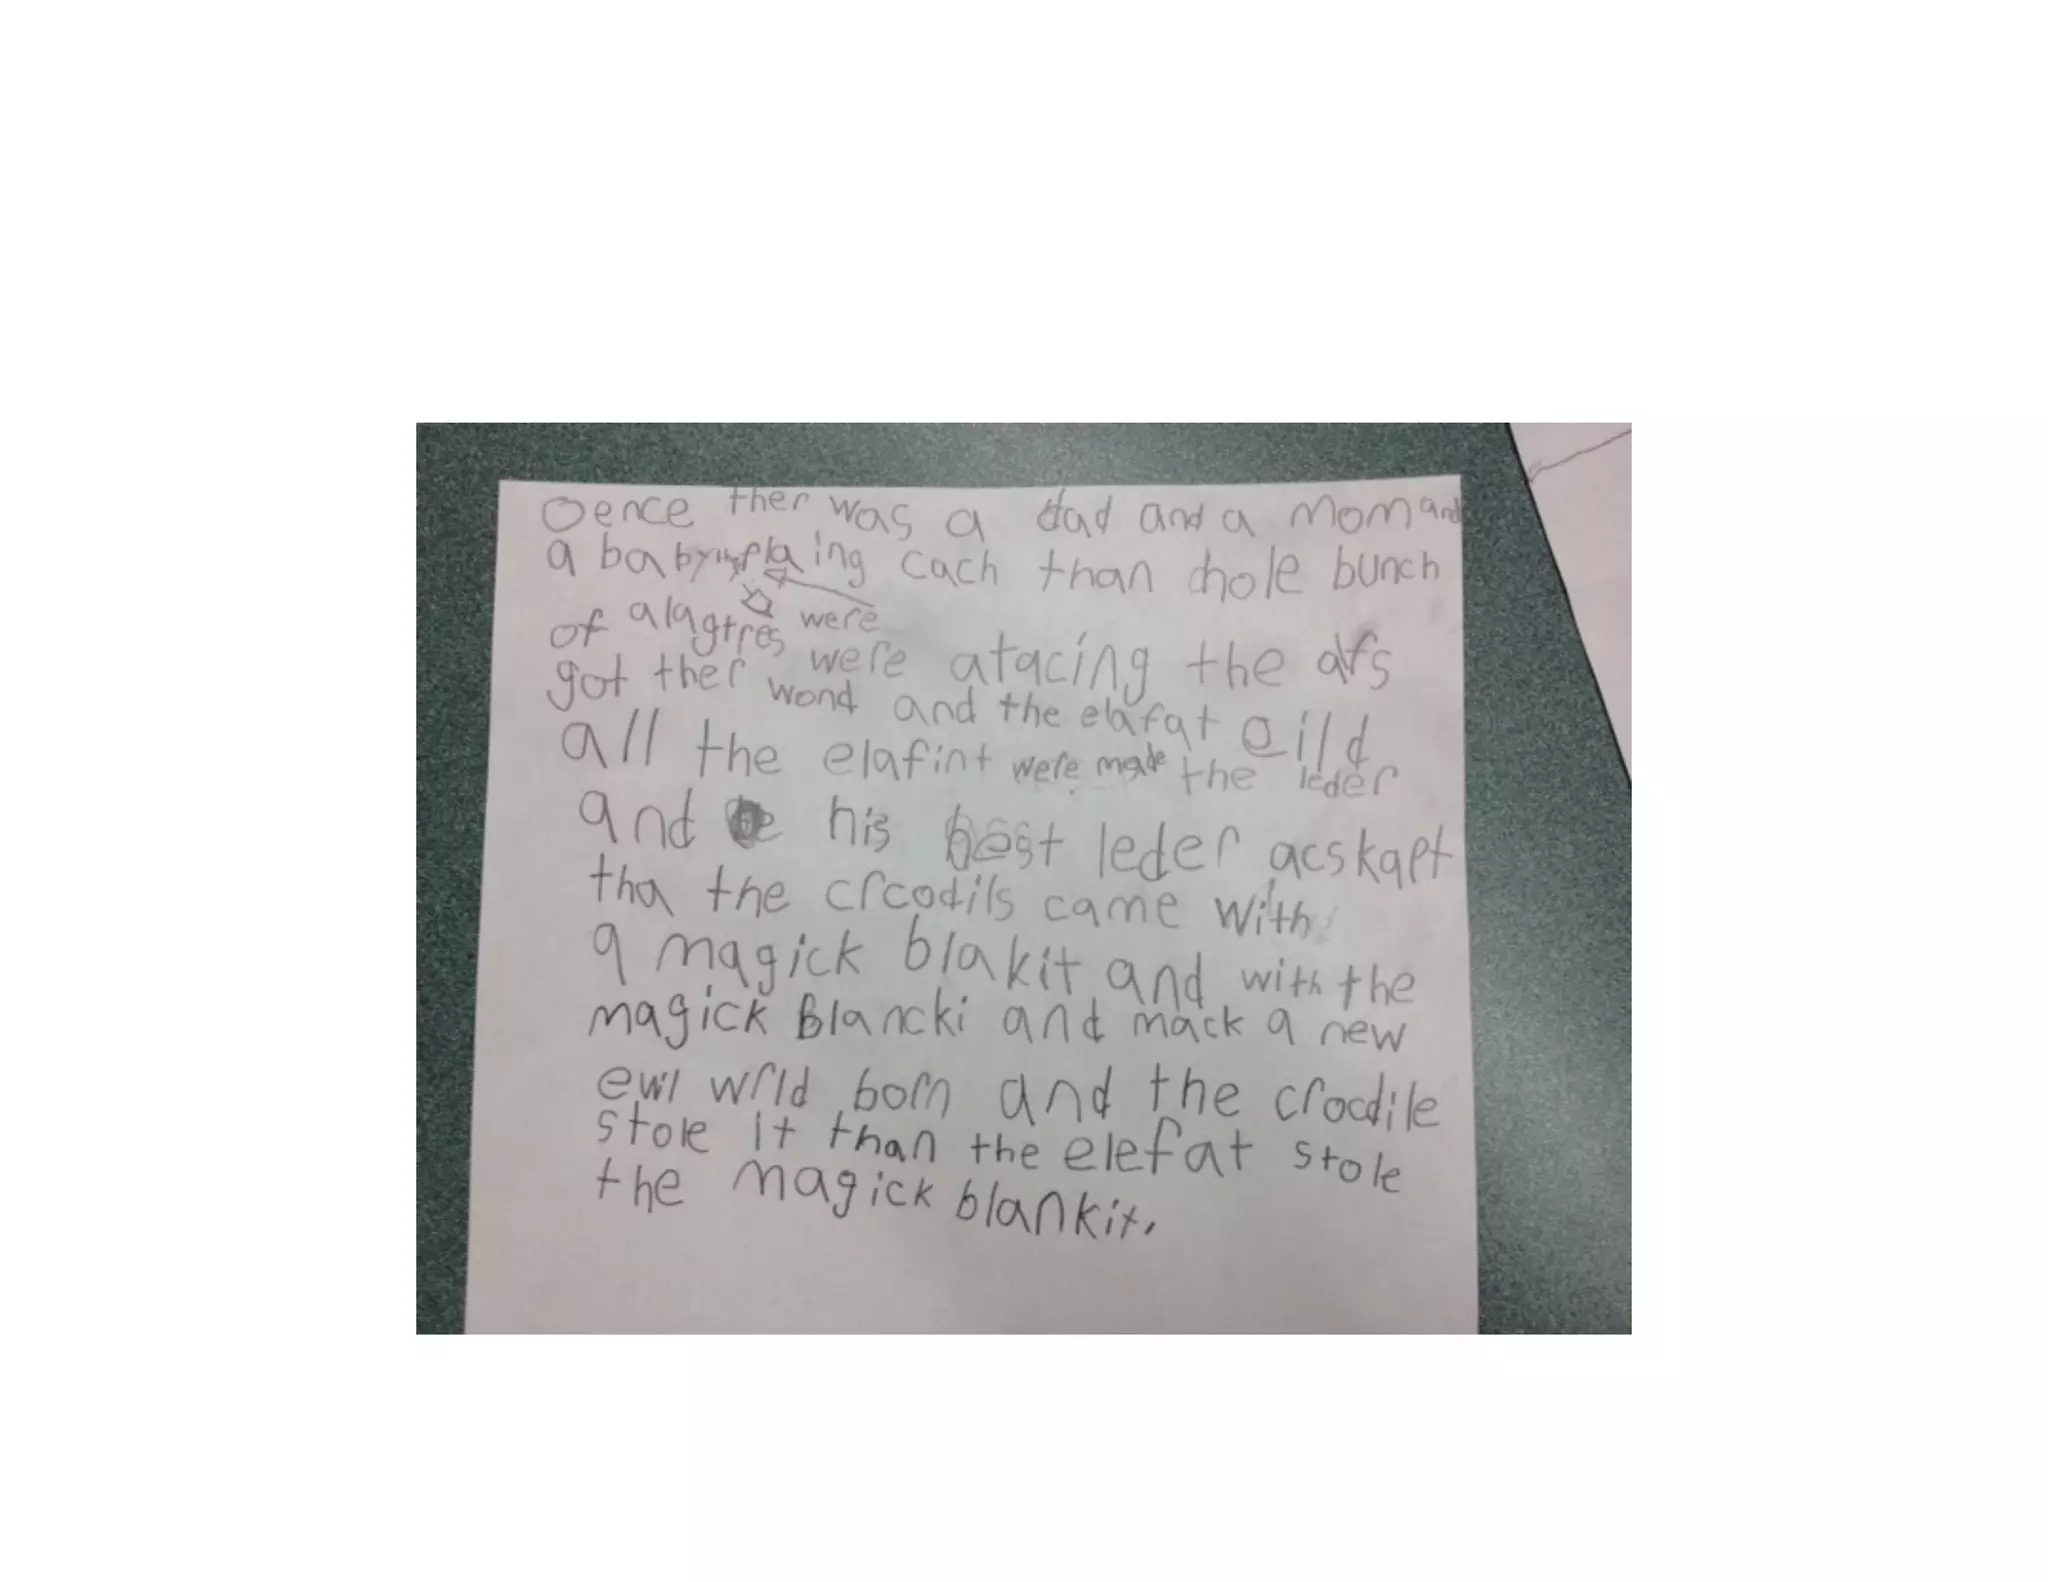 Oence ther was a dad and a mom and
a baby plaing cach than hole bunch
were
of alagtres were atacing the
got ther wond and the elafat
all the elafint were made the leder
and his best leder acskapt
tha the crcodils came with
a magick blakit and with the
magick Blancki and mack a new
ewil wrld born and the crocdile
stole it than the elefat stole
the magick blankit.